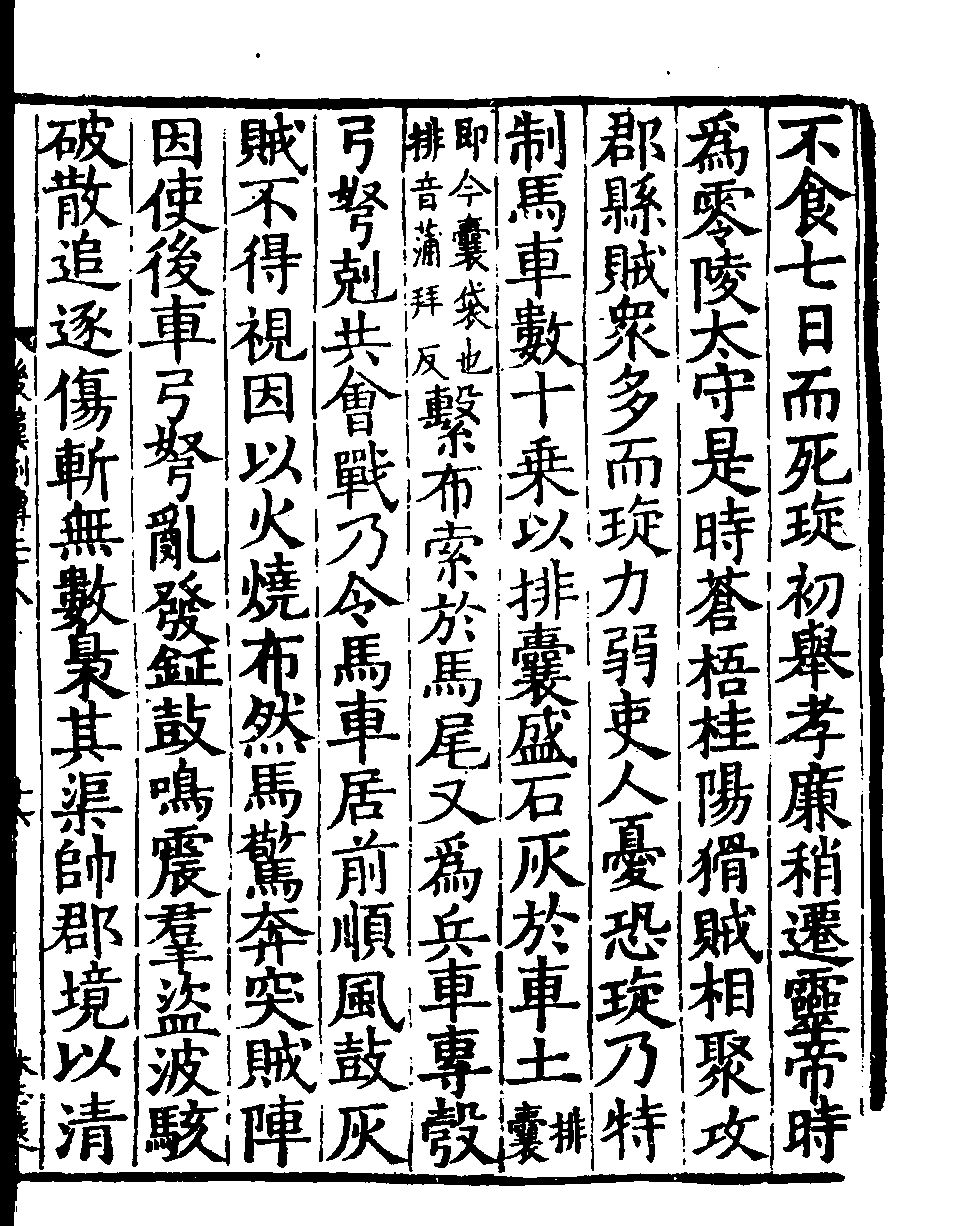 不食七日而死琁初舉孝廉稍遷靈帝時
爲零陵太守是時蒼梧桂陽猾賊相聚攻
郡縣賊衆多而琁力弱吏人憂恐琁乃特
制馬車數十乗以排囊盛石灰於車土排囊
即今囊袋也排音蒲拜反繫布索於馬尾又爲兵車專彀
弓弩剋共會戰乃令馬車居前順風鼓灰
賊不得視因以火燒布然馬驚奔突賊陣
因使後車弓弩亂發鉦鼓鳴震羣盜波駭
破散追逐傷斬無數梟其渠帥郡境以清